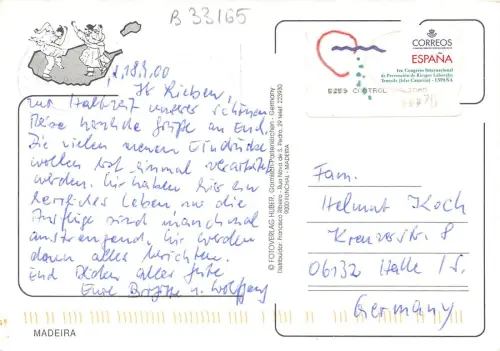 B 33165
18.9.00
Ihr Lieben,
zur Halbzeit unserer schönen
Reise herzliche Grüße an Euch.
Die vielen neuen Eindrücke
wollen erst einmal verarbeitet
werden. Wir haben hier ein
herrliches Leben nur die
Ausflüge sind manchmal
anstrengend. Wir werden
dann alles berichten.
Euch Beiden alles Gute
Eure Brigitte u. Wolfgang
MADEIRA
© FOTOVERLAG HUBER, Garmisch-Partenkirchen - Germany
Distribuidor: Francisco Ribeiro - Rua Nova de S. Pedro, 29 Telef. 223930
9000 FUNCHAL - MADEIRA
CORREOS
ESPAÑA
1er. Congreso Internacional
de Prevención de Riesgos Laborales
Tenerife (Islas Canarias) - ESPAÑA
CONTROL
Fam.
Helmut Koch
Kreuzerstr. 8
06132 Halle /S.
Germany